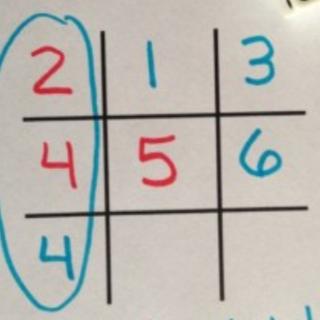 2 1 3
4 5 6
4